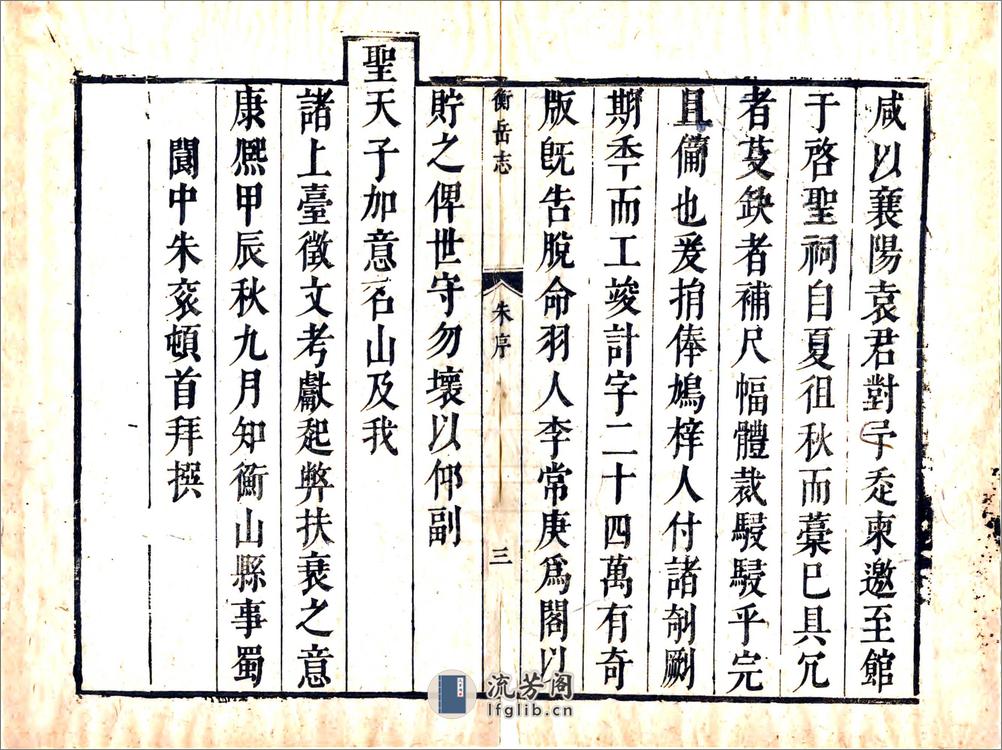 咸以襄陽袁君對予走柬邀至館
于啓聖祠自夏徂秋而藁已具冗
者芟缺者補尺幅體裁駸駸乎完
且備也爰捐俸鳩梓人付諸剞劂
期秊而工竣計字二十四萬有奇
版旣告脫命羽人李常庚爲閣以
衡岳志 朱序 三
貯之俾世守勿壞以仰副
聖天子加意名山及我
諸上臺徵文考獻起弊扶衰之意
康熙甲辰秋九月知衡山縣事蜀
閬中朱衮頓首拜撰
流芳阁
lfglib.cn